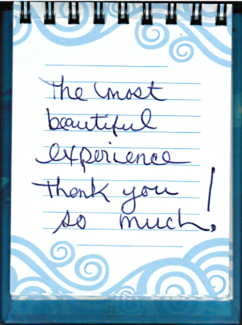 The most
beautiful
experience
Thank you
so much!